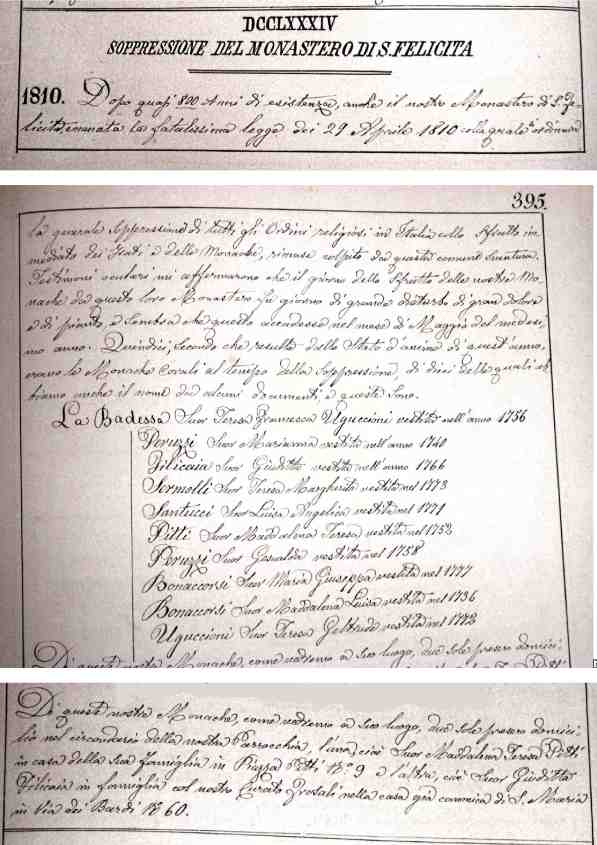 DCCLXXXIV
SOPPRESSIONE DEL MONASTERO DI S. FELICITA
1810. Dopo quasi 800 Anni di esistenza, anche il nostro Monastero di S. Fe-
licita, emanata la fatalissima legge dei 29 Aprile 1810 colla quale ordinava
395.
la generale Soppressione di tutti gli Ordini religiosi in Italia collo Sfratto im
mediato dei Frati e delle Monache, rimase colpito da questa comune Sventura.
Testimoni oculari mi affermarono che il giorno dello Sfratto delle nostre Mo-
nache da questo loro Monastero fu giorno di grande disturbo di gran dolore
e di pianto, e Sembra che questo accadesse nel mese di Maggio del medesi-
mo anno. Quindici, Secondo che resulta dallo Stato d'anime di quest'anno,
erano le Monache Corali al tempo della Soppressione, di dieci delle quali ab
biamo anche il nome da alcuni documenti, e queste Sono.
La Badessa Suor Teresa Francesca Uguccioni vestita nell'anno 1756
Peruzzi Suor Marianna vestita nell'anno 1740
Filicaia Suor Giuditta vestita nell'anno 1766
Sermolli Suor Teresa Margherita vestita nel 1773
Santucci Suor Luisa Angelica vestita nel 1771
Pitti Suor Maddalena Teresa vestita nel 1752
Peruzzi Suor Gesualda vestita nel 1758
Bonaccorsi Suor Maria Giuseppa vestita nel 1777
Bonaccorsi Suor Maddalena Luisa vestita nel 1756
Uguccioni Suor Teresa Geltrude vestita nel 1772
Di queste nostre Monache, come vedremo a Suo luogo, due Sole presero domici-
Di queste nostre Monache, come vedremo a Suo luogo, due Sole presero domici-
lio nel circondario della nostra Parrocchia, l'una, cioè Suor Maddalena Teresa Pitti
in casa della Sua famiglia in Piazza Pitti N.º 9 e l'altra, cioè Suor Giuditta
Filicaia in famiglia col nostro Curato Grotali nella casa già canonica di S. Maria
in Via dei Bardi N.º 60.